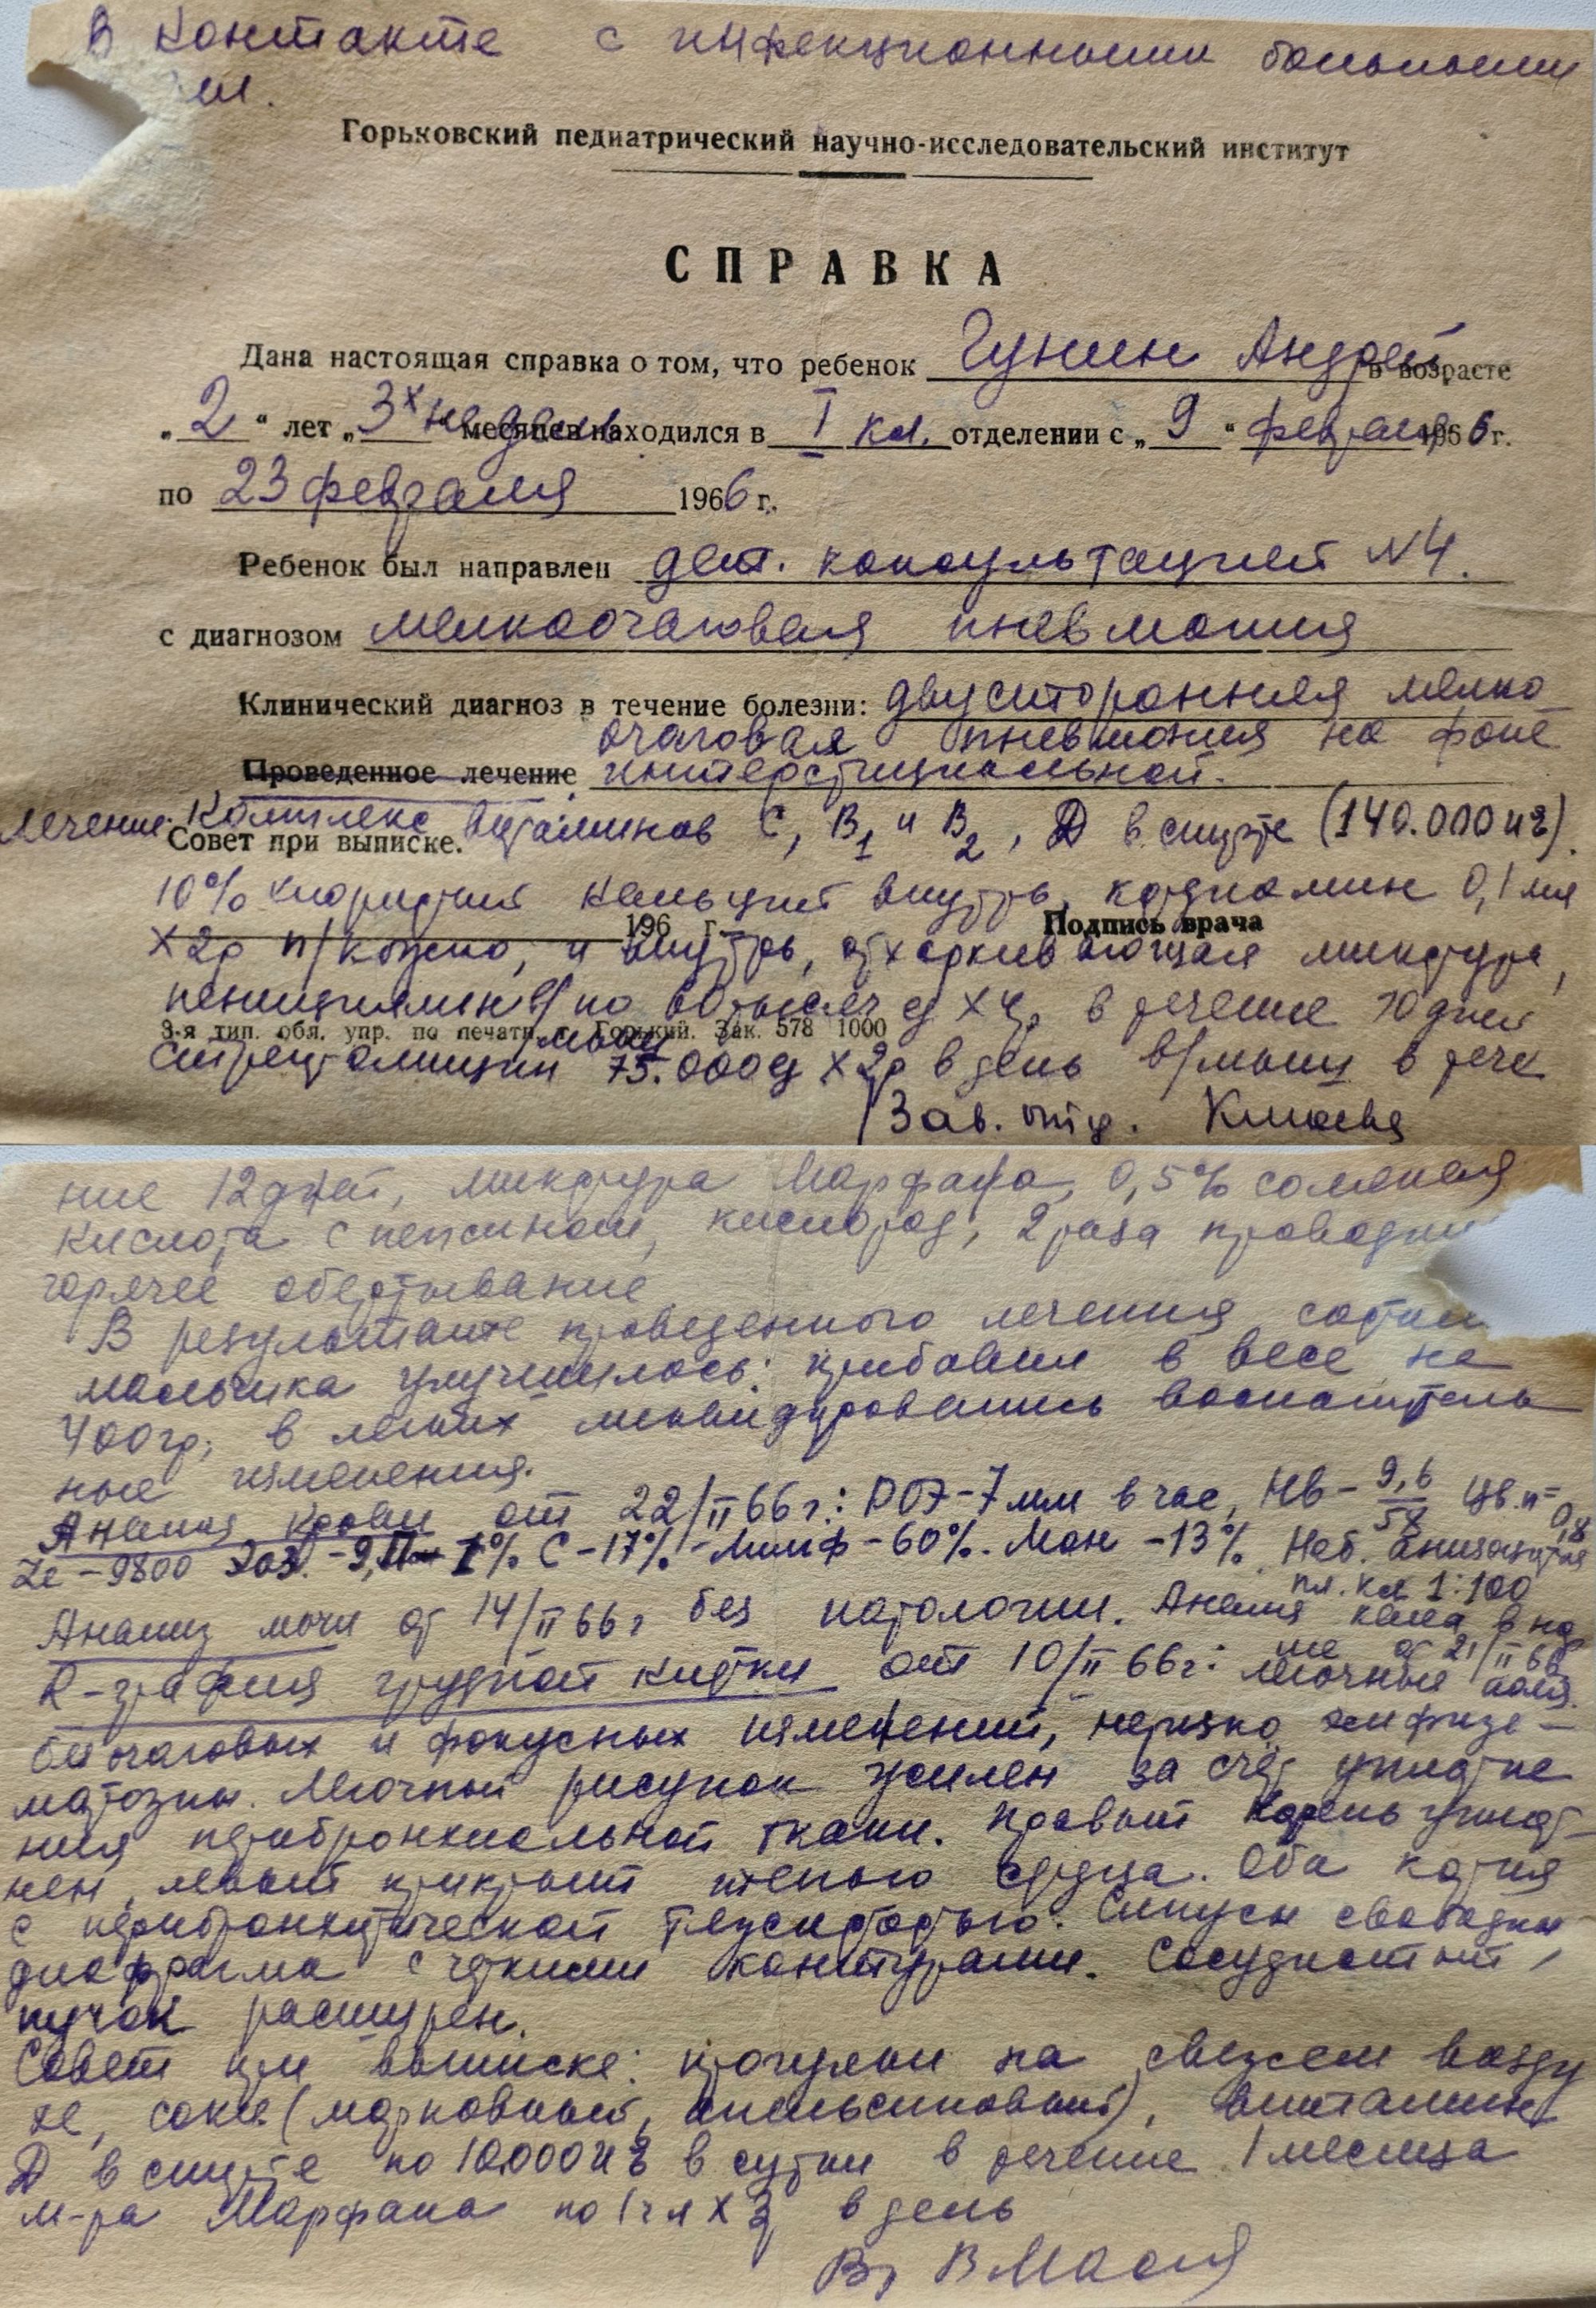 В контакте с инфекционными больными
Горьковский педиатрический научно-исследовательский институт
СПРАВКА
Дана настоящая справка о том, что ребенок Гунин Андрей в возрасте
„2“ лет „3х недель месяцев находился в I кл. отделении с „9“ февраля 1966 г.
по 23 февраля 1966 г.
Ребенок был направлен дет. консультацией N4.
с диагнозом мелкоочаговая пневмония
Клинический диагноз в течение болезни: двусторонняя мелко
очаговая пневмония на фоне
Проведенное лечение интерстициальной.
Лечение: Комплекс витаминов С, В1 и В2, Д в спирте (140.000 и2).
Совет при выписке.
10% хлористый кальций внутрь, кордиамин 0,1 мл
196 г. Подпись врача
х2р п/кожно, и внутрь, отхаркивающая микстура,
пенициллин в/м по тысяч ед х 4р в течение 10 дней
3-я тип. обл. упр. по печати, г. Горький. Зак. 578 1000
стрептомицин 75.000 ед х 2р в день в/мыш в тече
Зав. отд.
ние 12 дней, микстура Марфана, 0,5% соляная
кислота с пепсином, кислород, 2 раза проводили
горячее обертывание
В результате проведенного лечения
мальчика улучшилось: прибавил в весе на
400гр; в легких ликвидировались воспалитель
ные изменения.
Анализ крови от 22/II 66 г.: РОЭ-7 мм в час, Нв-9,6/58 Цв.п=0,8
Ze-9800 Эоз.-9, П- 1% С-17% Лимф-60%. Мон-13%. Неб. анизоцитоз
пл. кл 1:100
Анализ мочи от 14/II 66 г без патологии. Анализ кала в но
ме от 21/II 66
R-графия грудной клетки от 10/II 66 г: легочные поля
без очаговых и фокусных изменений, нерезко эмфизе-
матозны. Легочный рисунок усилен за счет уплотне
ния перибронхиальной ткани. Правый корень уплот-
нен, левый прикрыт тенью сердца. Оба корня
с перибронхитической тяжистостью. Синусы свободны
диафрагма с четкими контурами. Сосудистый
пучок расширен.
Совет при выписке: прогулки на свежем возду
хе, соки (морковный, апельсиновый), витамин
Д в спирте по 10.000 и2 в сутки в течение 1 месяца
м-ра Марфана по 1 ч л х 3р в день